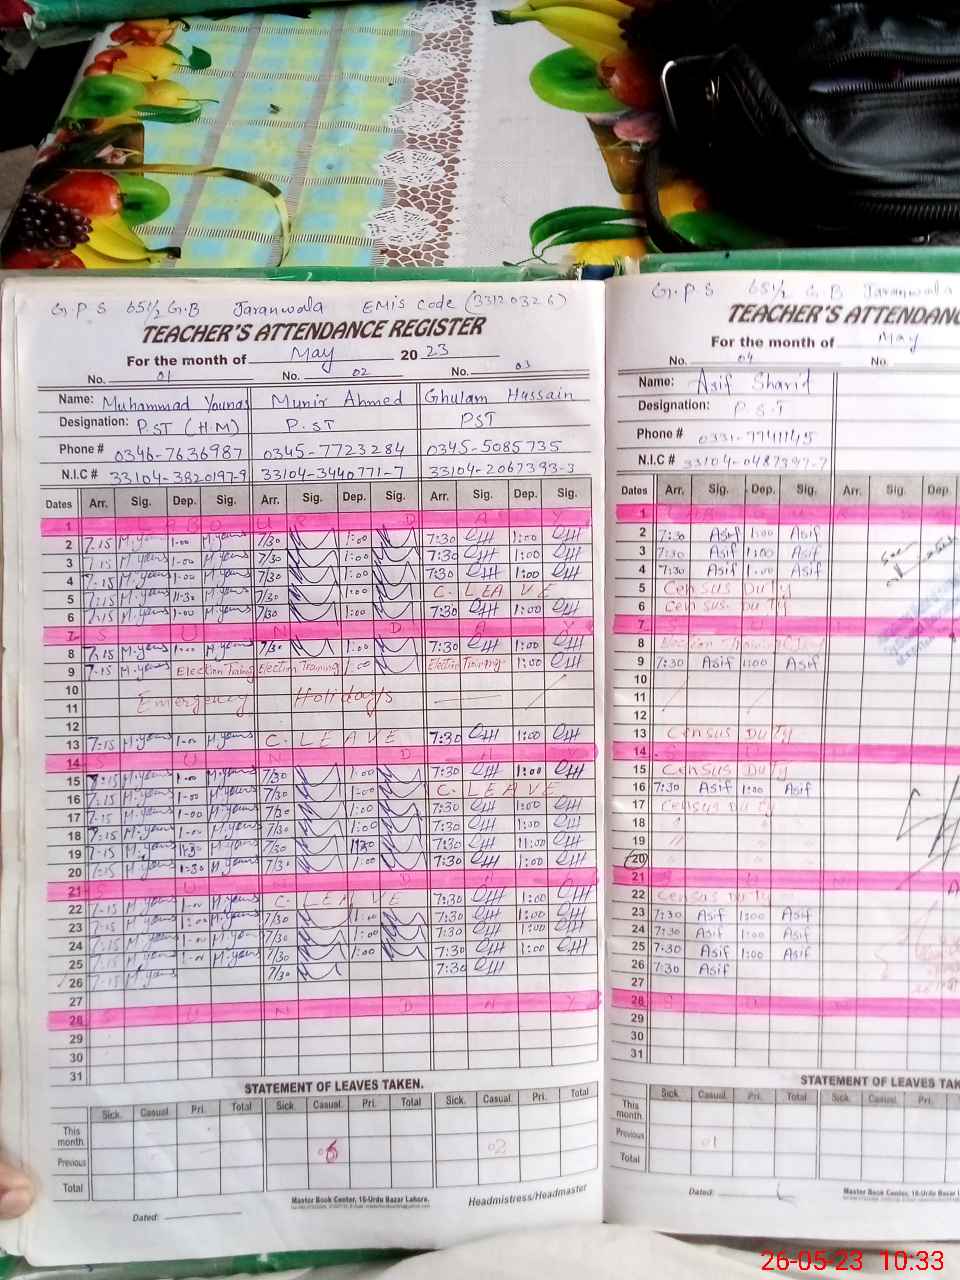 G.P.S 65½ G.B Jaranwala EMIS Code (33120326)
TEACHER'S ATTENDANCE REGISTER
For the month of May 2023
No. 01 No. 02 No. 03
Name: Muhammad Younas Munir Ahmed Ghulam Hussain
Designation: P.ST (H.M) P.ST PST
Phone # 0346-7636987 0345-7723284 0345-5085735
N.I.C # 33104-3820197-9 33104-3440771-7 33104-2067393-3
Dates Arr. Sig. Dep. Sig. Arr. Sig. Dep. Sig. Arr. Sig. Dep. Sig.
1 L A B O U R D A Y
2 7-15 M.youns 1-00 M.youns 7/30 1:00 7:30 1:00
3 7-15 M.youns 1-00 M.youns 7/30 1:00 7:30 1:00
4 7-15 M.youns 1-00 M.youns 7/30 1:00 7:30 1:00
5 7-15 M.youns 11-30 M.youns 7/30 1:00 C. LEAVE
6 7-15 M.youns 1-00 M.youns 7/30 1:00 7:30 1:00
7 S U N D A Y
8 7-15 M.youns 1-00 M.youns 7/30 1:00 7:30 1:00
9 7-15 M.youns Election Traing Election Training 1:00 Election Training 1:00
10
11 Emergency Holidays
12
13 7-15 M.youns 1-00 M.youns C. LEAVE 7:30 1:00
14 S U N D A Y
15 7-15 M.youns 1-00 M.youns 7/30 1:00 7:30 1:00
16 7-15 M.youns 1-00 M.youns 7/30 1:00 C. LEAVE
17 7-15 M.youns 1-00 M.youns 7/30 1:00 7:30 1:00
18 7-15 M.youns 1-00 M.youns 7/30 1:00 7:30 1:00
19 7-15 M.youns 11-30 M.youns 7/30 1130 7:30 11:00
20 7-15 M.youns 1-30 M.youns 7/30 1:00 7:30 1:00
21 S U N D A Y
22 7-15 M.youns 1-00 M.youns C. LEAVE 7:30 1:00
23 7-15 M.youns 1:00 M.youns 7/30 1:00 7:30 1:00
24 7-15 M.youns 1-00 M.youns 7/30 1:00 7:30 1:00
25 7-15 M.youns 1-00 M.youns 7/30 1:00 7:30 1:00
26 7-15 M.youns 7/30 7:30
27
28 S U N D A Y
29
30
31
STATEMENT OF LEAVES TAKEN.
Sick. Casual. Pri. Total Sick. Casual. Pri. Total Sick. Casual. Pri. Total
This month
Previous 02
Total
Master Book Center, 15-Urdu Bazar Lahore.
Headmistress/Headmaster
Dated:
G.P.S 65½ G.B Jaranwala
TEACHER'S ATTENDANC
For the month of May
No. 04 No.
Name: Asif Sharif
Designation: P.S.T
Phone # 0331-7741145
N.I.C # 33104-0487397-7
Dates Arr. Sig. Dep. Sig. Arr. Sig. Dep.
1
2 7:30 Asif 1:00 Asif
3 7:30 Asif 1:00 Asif
4 7:30 Asif 1:00 Asif
5 Census Duty
6 Census Duty
7 S U
8 Election Training
9 7:30 Asif 1:00 Asif
10
11
12
13 Census Duty
14 S U
15 Census Duty
16 7:30 Asif 1:00 Asif
17 Census Duty
18 "
19 "
20 "
21 S U
22 Census Duty
23 7:30 Asif 1:00 Asif
24 7:30 Asif 1:00 Asif
25 7:30 Asif 1:00 Asif
26 7:30 Asif
27
28 S U N
29
30
31
See
STATEMENT OF LEAVES TAK
Sick. Casual. Pri. Total Sick. Casual. Pri.
This month
Previous 01
Total
Dated:
Master Book Center, 15-Urdu Bazar L
26-05-23 10:33